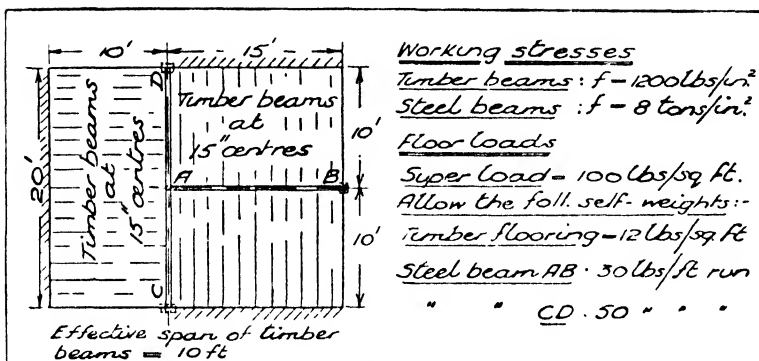 10'
15'
20'
Timber beams
at
15" centres
D
Timber beams
at
15" centres
10'
A
B
10'
C
Effective span of timber
beams = 10 ft
Working stresses
Timber beams : f - 1200 lbs/in²
Steel beams : f - 8 tons/in²
Floor loads
Super load - 100 lbs/sq ft.
Allow the foll. self-weights:-
Timber flooring - 12 lbs/sq ft
Steel beam AB · 30 lbs/ft run
" " CD . 50 " " "